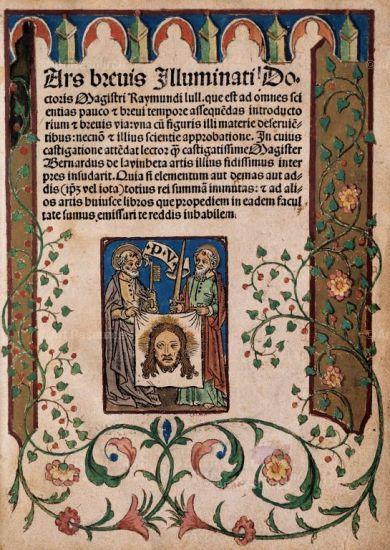 Ars breuis Illuminati Do-
ctoris Magistri Raymundi lull. que est ad omnes sci
entias pauco ⁊ breui tempore assequẽdas introducto
rium ⁊ breuis via: vna cũ figuris illi materie deseruiẽ
tibus: necnõ ⁊ illius scientie approbatione. In cuius
castigatione attẽdat lector q̃ castigatissime Magister
Bernardus de lauinheta artis illius fidissimus inter
pres insudarit. Quia si elementum aut demas aut ad
dis (ip̃s vel iota) totius rei summã inmutas: ⁊ ad ali
os artis huiusce libros que propediem in eadem facul
tate sumus emissuri te reddis inhabilem.
P. V.